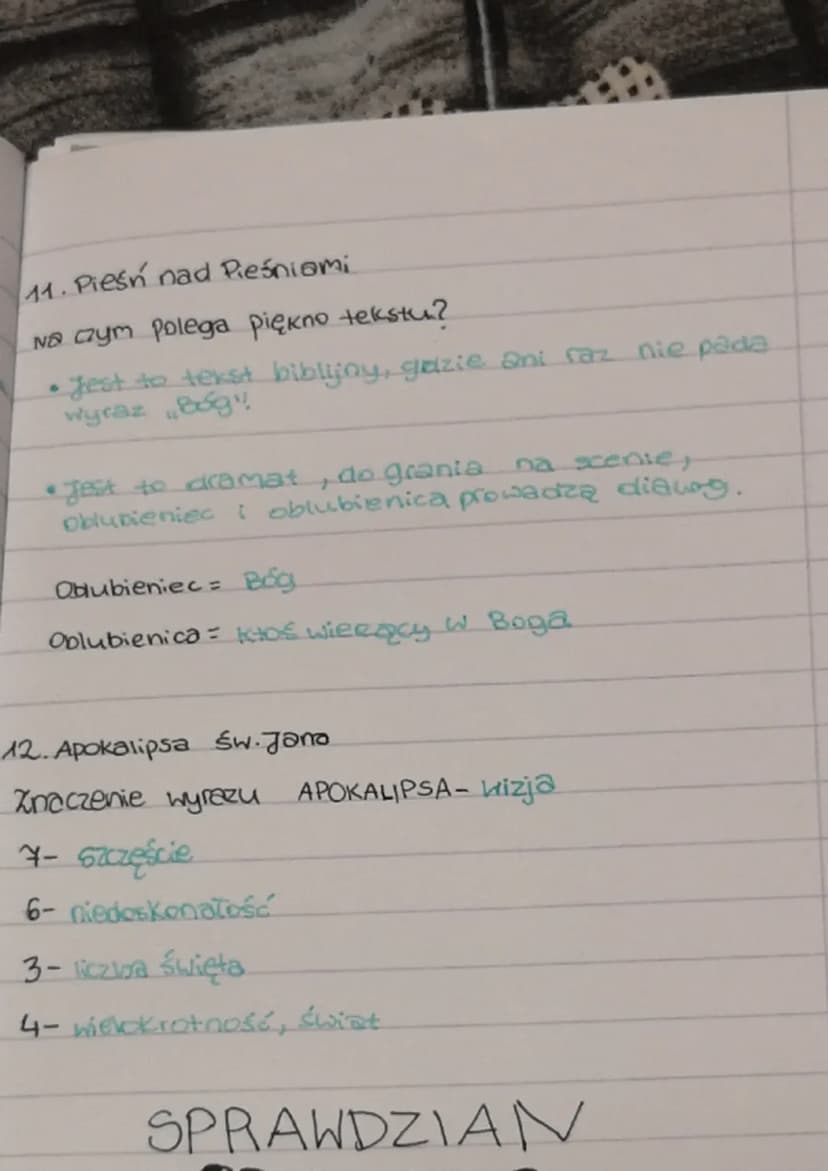 11. Pieśń nad Pieśniami
Na czym polega piękno tekstu?
• Jest to tekst biblijny, gdzie ani raz nie pada
wyraz „Bóg”!
• Jest to dramat, do grania na scenie,
oblubieniec i oblubienica prowadzą dialog.
Oblubieniec = Bóg
Oblubienica = ktoś wierzący w Boga
12. Apokalipsa św. Jana
Znaczenie wyrazu APOKALIPSA - wizja
7- szczęście
6- niedoskonałość
3- liczba święta
4- wielokrotność, świat
SPRAWDZIAN